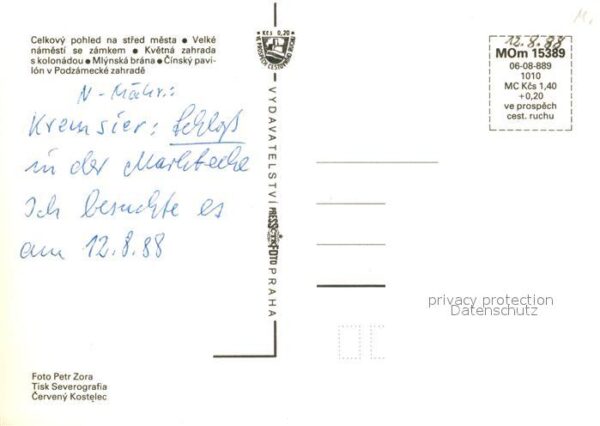 Celkový pohled na střed města ● Velké
náměstí se zámkem ● Květná zahrada
s kolonádou ● Mlýnská brána ● Čínský pavi-
lón v Podzámecké zahradě
N-Mähr.:
Kremsier: Schloß
in der Marktecke
Ich besuchte es
am 12.8.88
Kčs 0,20
VYDAVATELSTVÍ PRESSFOTO PRAHA
12.8.88
MOm 15389
06-08-889
1010
MC Kčs 1,40
+0,20
ve prospěch
cest. ruchu
privacy protection
Datenschutz
Foto Petr Zora
Tisk Severografia
Červený Kostelec